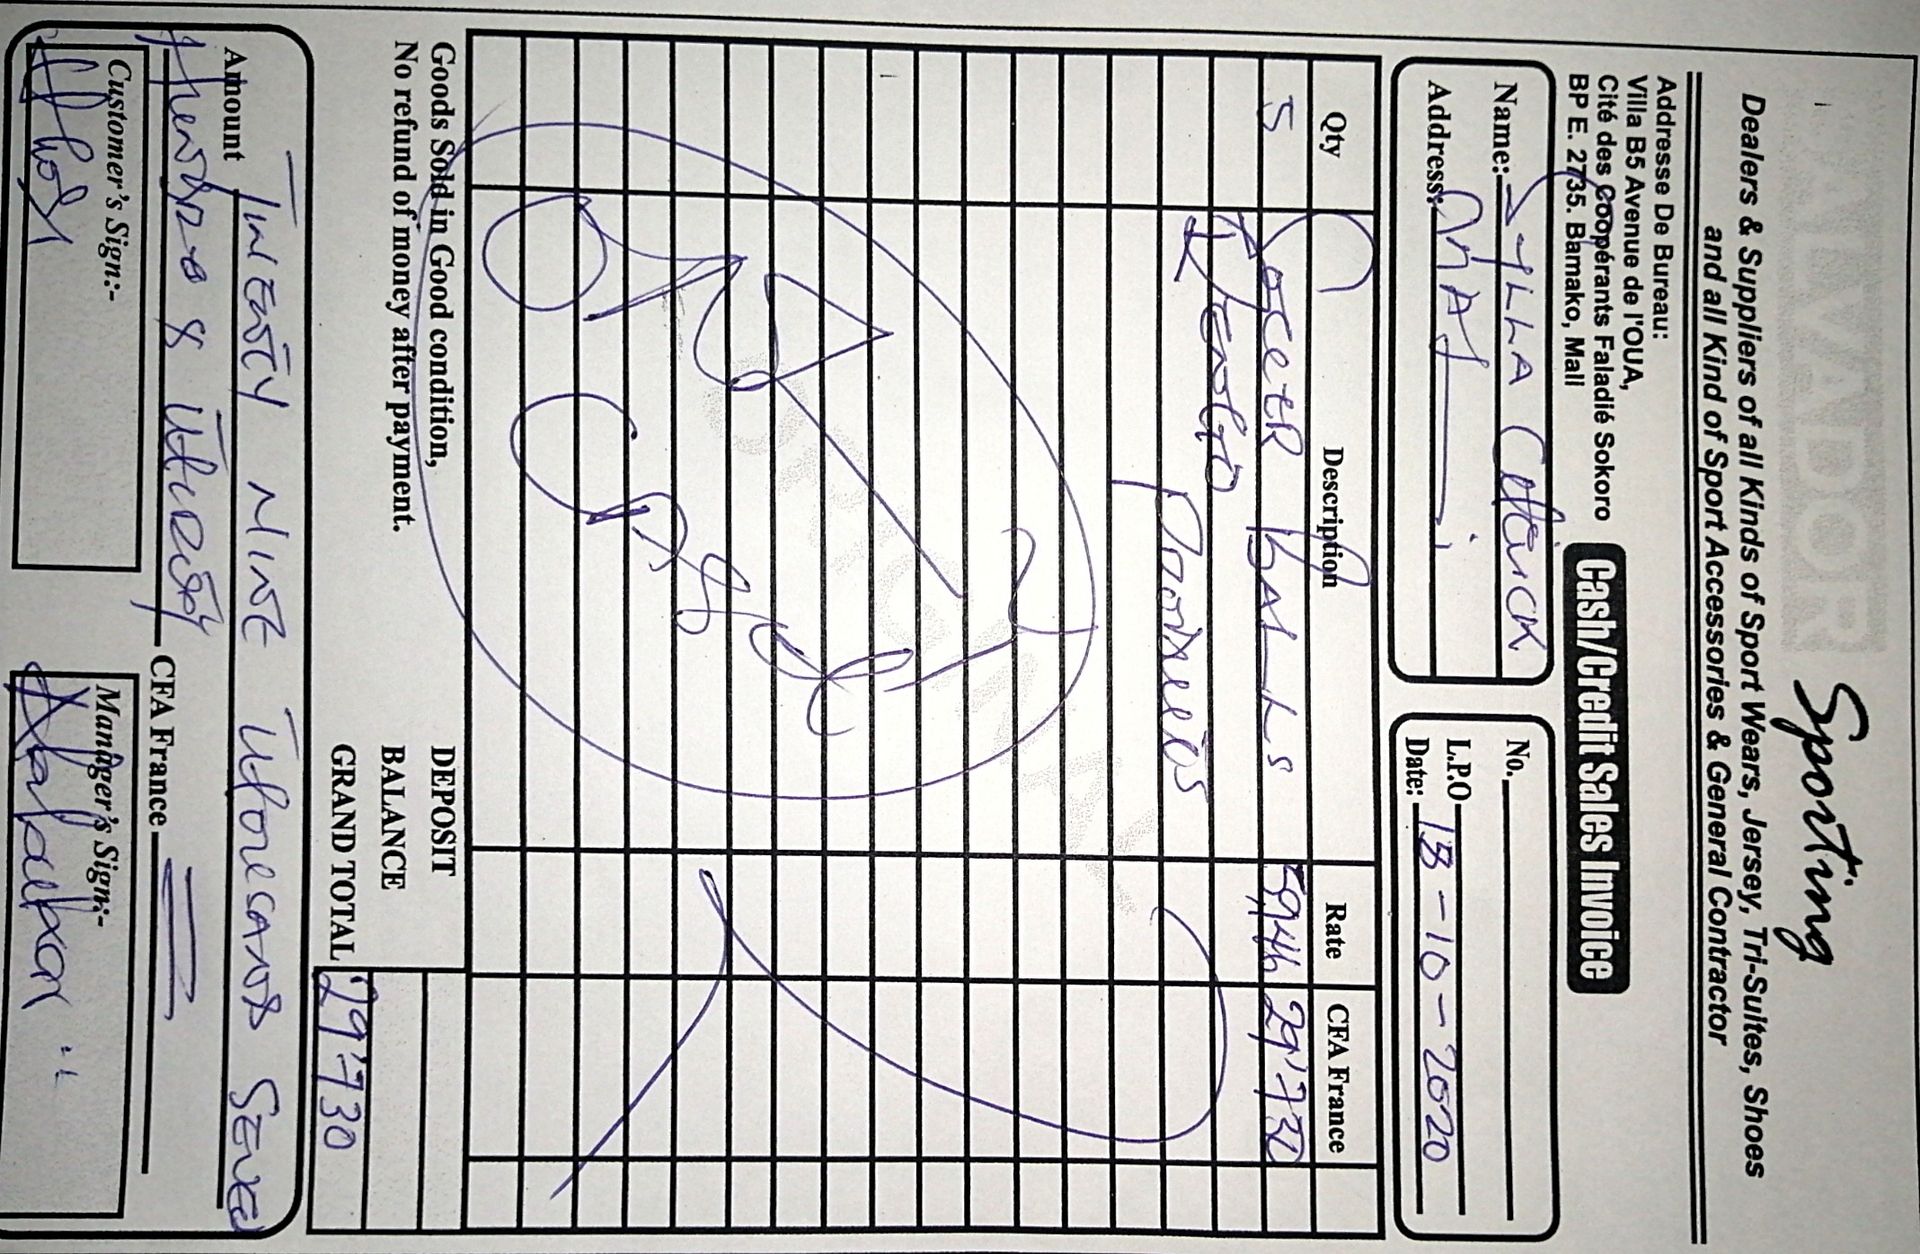 SALVADOR Sporting
Dealers & Suppliers of all Kinds of Sport Wears, Jersey, Tri-Suites, Shoes
and all Kind of Sport Accessories & General Contractor
Addresse De Bureau:
Villa B5 Avenue de l'OUA,
Cité des Coopérants Faladié Sokoro
BP E. 2735. Bamako, Mali
Cash/Credit Sales Invoice
Name: SYLLA CHEICK
Address:
No.
L.P.O
Date: 13-10-2020
Qty Description Rate CFA France
5 SOCCER BALLS 5,946 29'730
Goods Sold in Good condition,
No refund of money after payment.
DEPOSIT
BALANCE
GRAND TOTAL 29'730
Amount TWENTY NINE THOUSAND SEVEN
HUNDRED & THIRTY CFA France
Customer's Sign:-
Manager's Sign:-